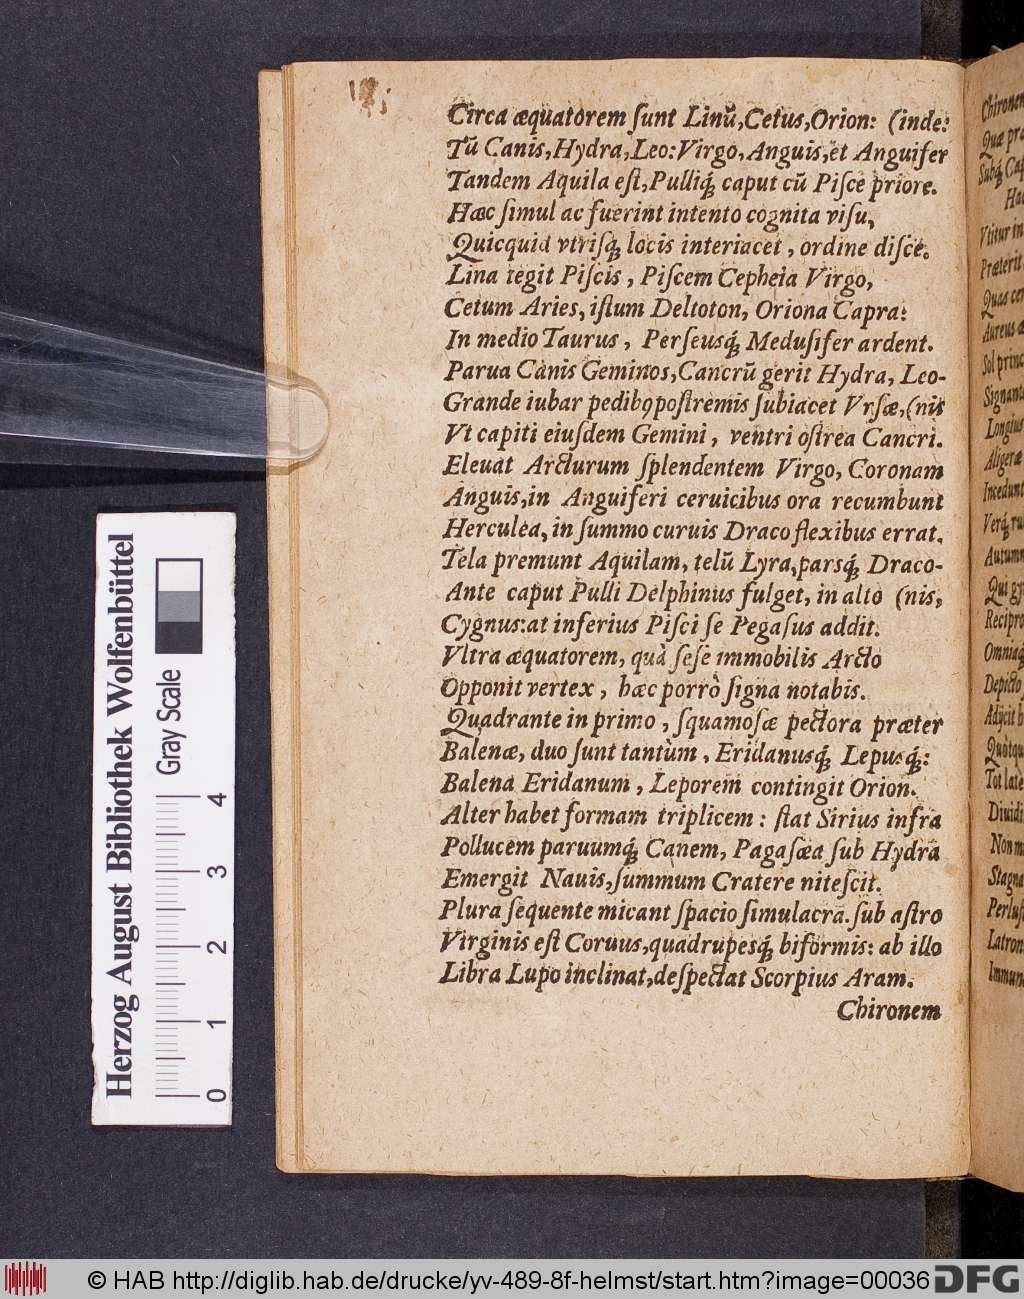 Circa æquatorem ſunt Linũ,Cetus,Orion: (inde:
Tũ Canis,Hydra,Leo:Virgo,Anguis,et Anguifer
Tandem Aquila eſt,Pulliq́; caput cũ Piſce priore.
Hæc ſimul ac fuerint intento cognita viſu,
Quicquid vtriſq́; locis interiacet, ordine diſce.
Lina tegit Piſcis, Piſcem Cepheia Virgo,
Cetum Aries, iſtum Deltoton, Oriona Capra:
In medio Taurus, Perſeusq́; Meduſifer ardent.
Parua Canis Geminos,Cancrũ gerit Hydra, Leo-
Grande iubar pedibꝰ poſtremis ſubiacet Vrſæ,(nis
Vt capiti eiuſdem Gemini, ventri oſtrea Cancri.
Eleuat Arcturum ſplendentem Virgo, Coronam
Anguis,in Anguiferi ceruicibus ora recumbunt
Herculea, in ſummo curuis Draco flexibus errat.
Tela premunt Aquilam, telũ Lyra,parsq́; Draco-
Ante caput Pulli Delphinus fulget, in alto (nis,
Cygnus:at inferius Piſci ſe Pegaſus addit.
Vltra æquatorem, quà ſeſe immobilis Arcto
Opponit vertex, hæc porrò ſigna notabis.
Quadrante in primo, ſquamoſæ pectora præter
Balenæ, duo ſunt tantùm, Eridanusq́; Lepusq́;:
Balena Eridanum, Leporem contingit Orion.
Alter habet formam triplicem: ſtat Sirius infra
Pollucem paruumq́; Canem, Pagaſæa ſub Hydra
Emergit Nauis,ſummum Cratere niteſcit.
Plura ſequente micant ſpacio ſimulacra. ſub aſtro
Virginis eſt Coruus,quadrupesq́; biformis: ab illo
Libra Lupo inclinat,deſpectat Scorpius Aram.
Chironem
Herzog August Bibliothek Wolfenbüttel
Gray Scale
0 1 2 3 4
© HAB http://diglib.hab.de/drucke/yv-489-8f-helmst/start.htm?image=00036
DFG